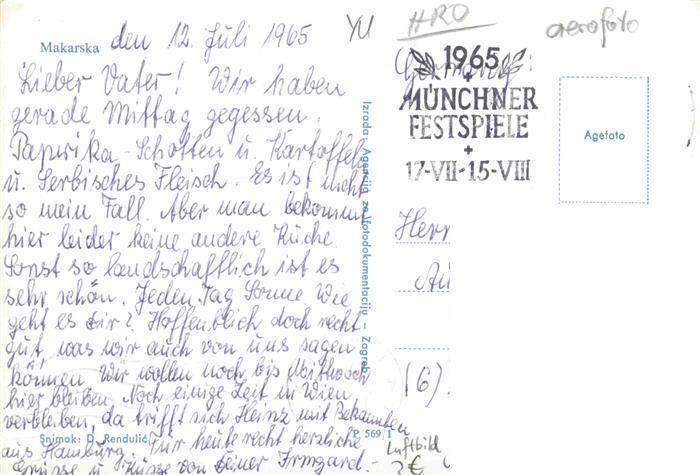 YU HRO aerofoto
Makarska den 12. Juli 1965
Lieber Vater! Wir haben
gerade Mittag gegessen.
Paprika-Schoten u. Kartoffeln
u. Serbisches Fleisch. Es ist nicht
so mein Fall. Aber man bekommt
hier leider keine andere Küche.
Sonst so landschaftlich ist es
sehr schön. Jeden Tag Sonne. Wie
geht es Dir? Hoffentlich doch recht
gut, was wir auch von uns sagen
können. Wir wollen noch bis Mittwoch
hier bleiben. Noch einige Zeit in Wien
verbleiben, da trifft sich Heinz mit Bekannten
aus Hamburg. Für heute recht herzliche
Grüsse u. Küsse von Deiner Irmgard.-
Snimak: D. Rendulić
P 569/1
Izrada: Agencija za fotodokumentaciju - Zagreb
Germany!
1965
+
MÜNCHNER
FESTSPIELE
+
17-VII-15-VIII
Agefoto
Herr
(6)
Luftbild
2€